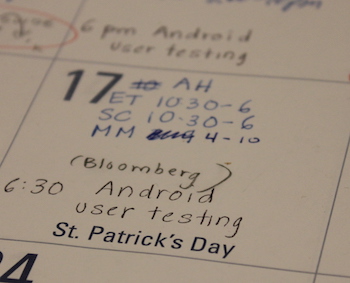 6 pm Android
user testing
17 AH
ET 10:30-6
SC 10-30-6
MM 4-10
(Bloomberg)
6:30 Android
user testing
St. Patrick's Day
24